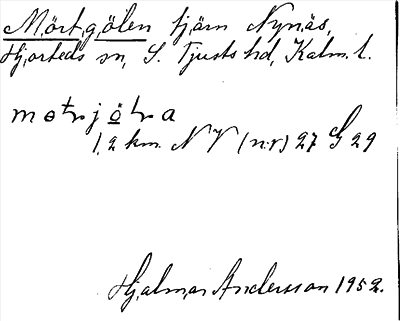 Mörtgölen tjärn Nynäs,
Hjorteds sn, S. Tjusts hd, Kalm. l.
1,2 km. NV (nr) 27 G 29
Hjalmar Andersson 1952.